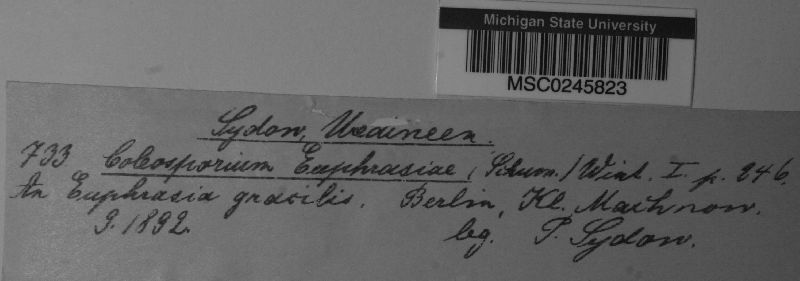 Michigan State University
MSC0245823
Sydow, Uredineen.
733 Coleosporium Euphrasiae (Schum.) Wint. I. p. 246.
An Euphrasia gracilis. Berlin, Kl. Machnow.
9. 1892. leg. P. Sydow.